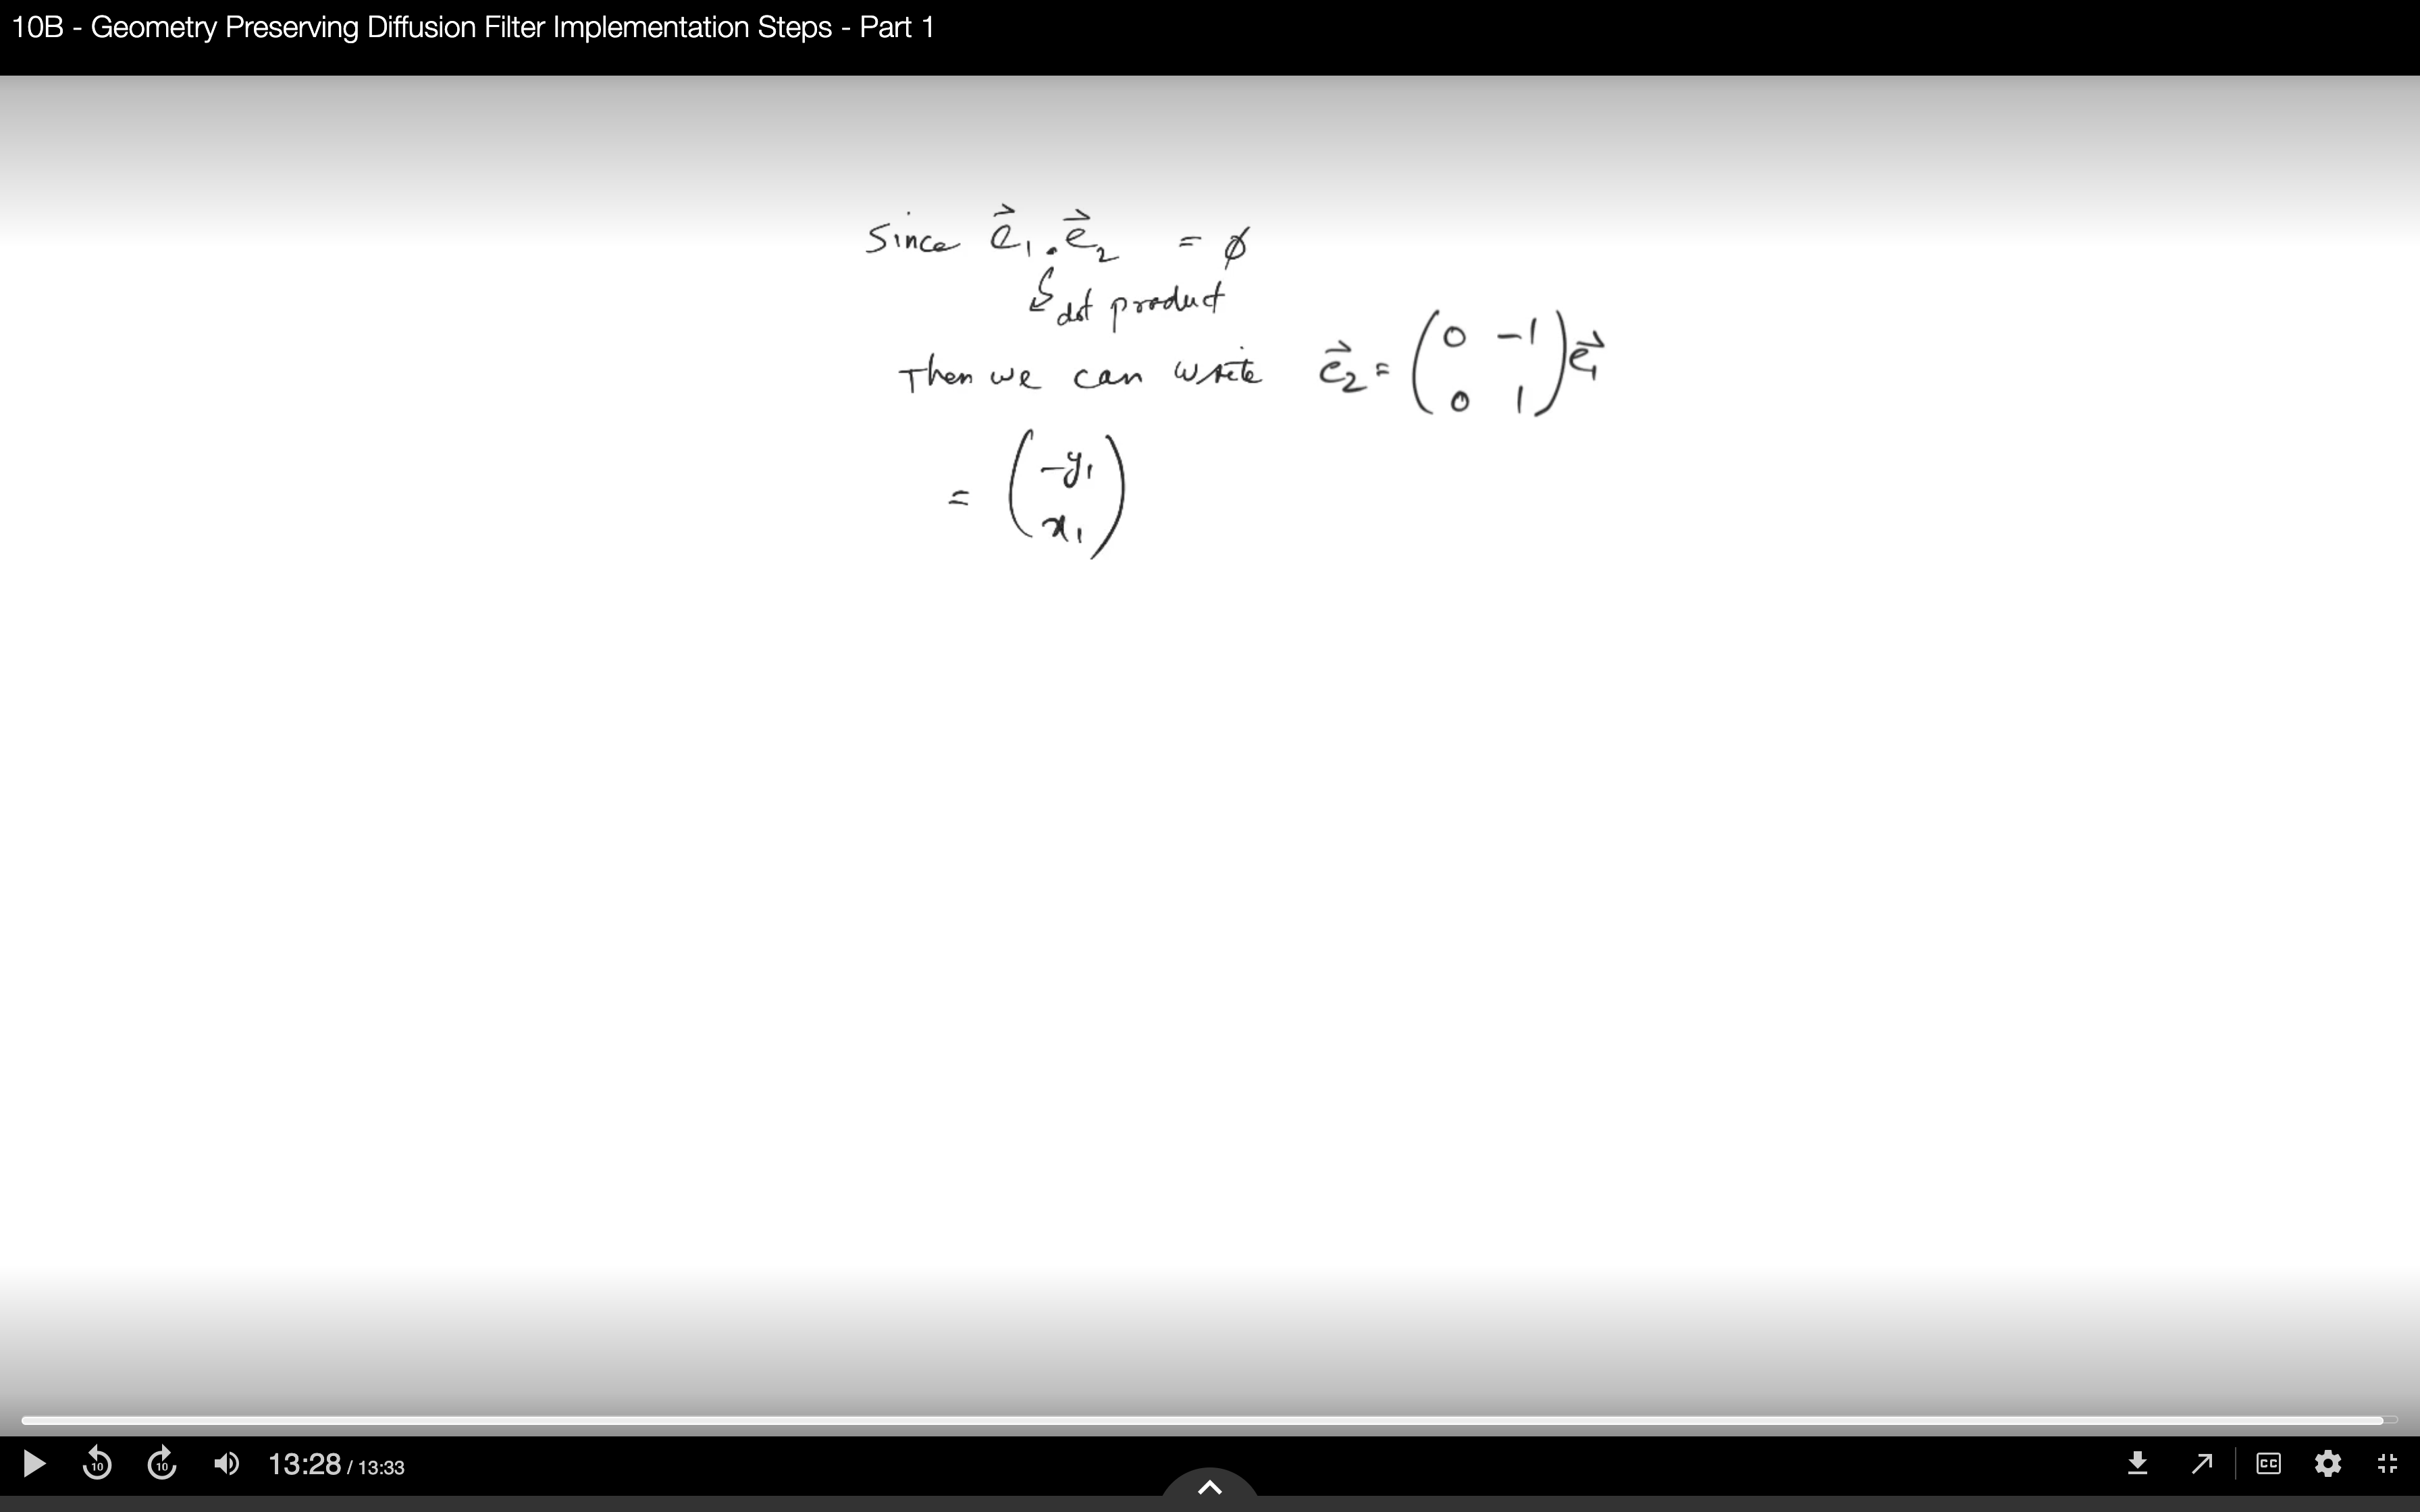 10B - Geometry Preserving Diffusion Filter Implementation Steps - Part 1
Since e⃗₁ . e⃗₂ = ϕ
dot product
Then we can write e⃗₂ = ( 0 -1 ) e⃗₁
( 0 1 )
= ( -y₁ )
( x₁ )
10 10 13:28 / 13:33 CC